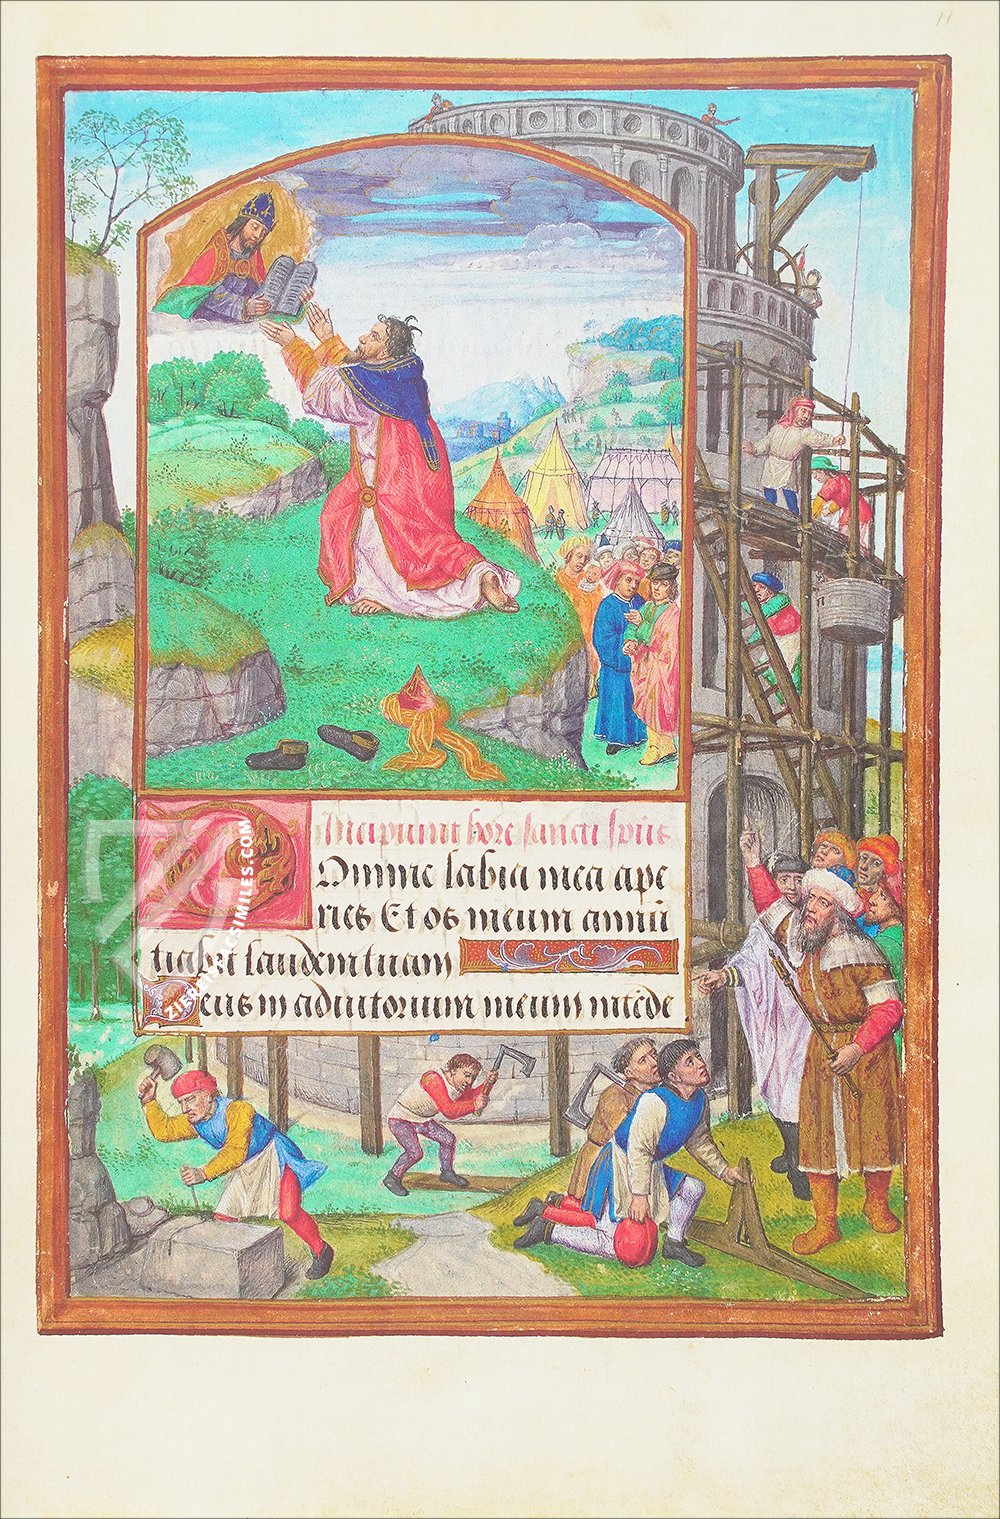 11
Incipiunt hore sancti spūs
Domine labia mea ape
ries Et os meum annū
tiabit laudem tuam
Deus in adiutorium meum intēde
ZIEREIS FACSIMILES.COM